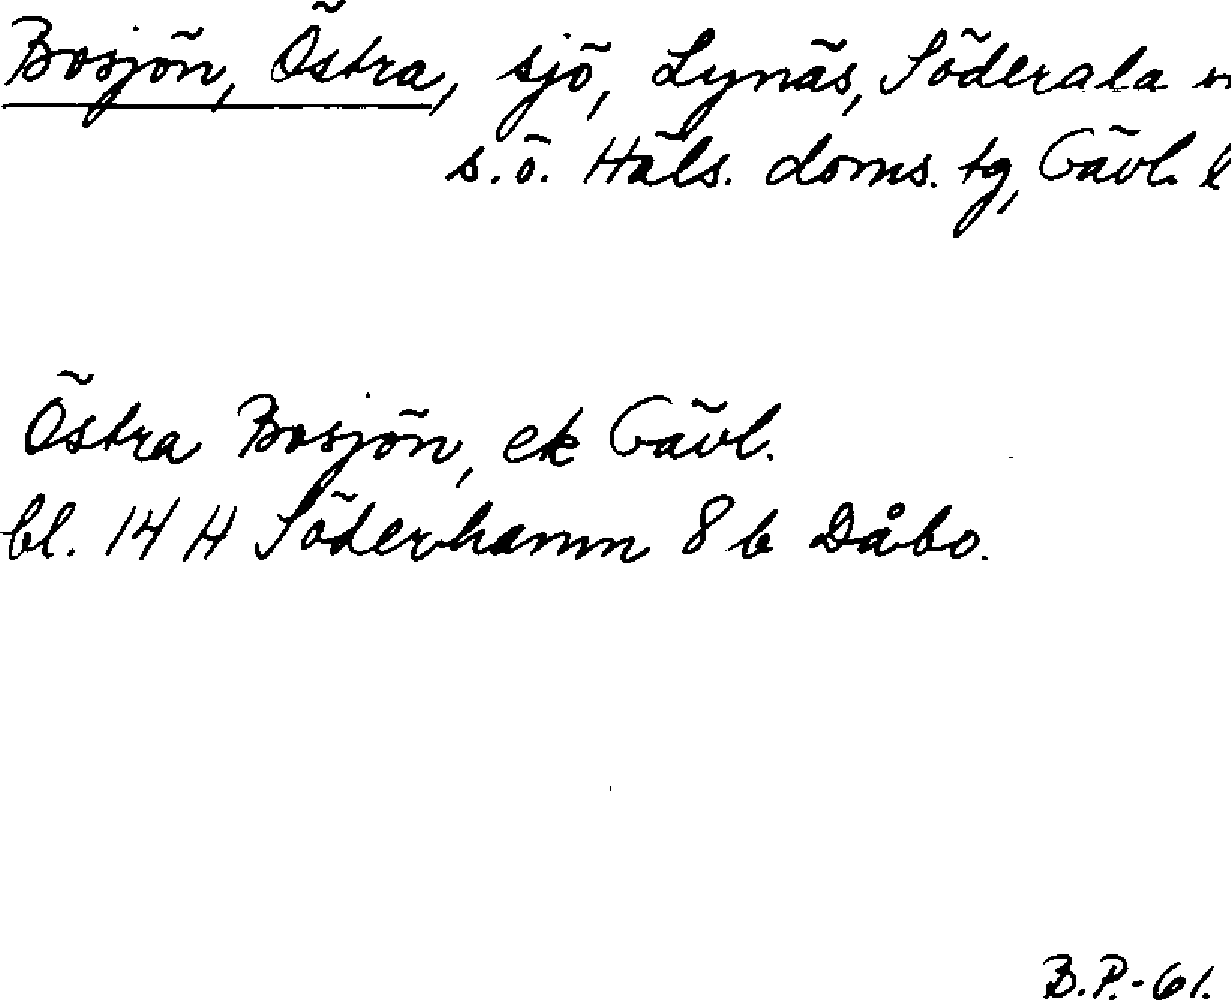 Bosjön, Östra, sjö, Lynäs, Söderala
s.ö. Häls. doms. tg, Gävl. l
Östra Bosjön, ek Gävl.
bl. 14 H Söderhamn 8 b Dåbo.
B.P.-61.